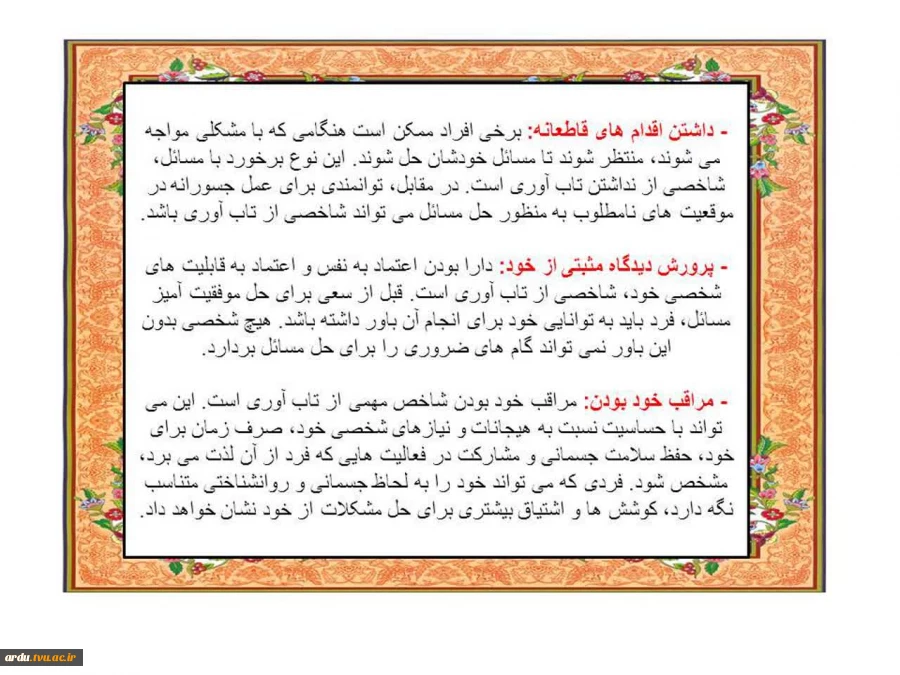 - داشتن اقدام های قاطعانه: برخی افراد ممکن است هنگامی که با مشکلی مواجه
می شوند، منتظر شوند تا مسائل خودشان حل شوند. این نوع برخورد با مسائل،
شاخصی از نداشتن تاب آوری است. در مقابل، توانمندی برای عمل جسورانه در
موقعیت های نامطلوب به منظور حل مسائل می تواند شاخصی از تاب آوری باشد.
- پرورش دیدگاه مثبتی از خود: دارا بودن اعتماد به نفس و اعتماد به قابلیت های
شخصی خود، شاخصی از تاب آوری است. قبل از سعی برای حل موفقیت آمیز
مسائل، فرد باید به توانایی خود برای انجام آن باور داشته باشد. هیچ شخصی بدون
این باور نمی تواند گام های ضروری را برای حل مسائل بردارد.
- مراقب خود بودن: مراقب خود بودن شاخص مهمی از تاب آوری است. این می
تواند با حساسیت نسبت به هیجانات و نیازهای شخصی خود، صرف زمان برای
خود، حفظ سلامت جسمانی و مشارکت در فعالیت هایی که فرد از آن لذت می برد،
مشخص شود. فردی که می تواند خود را به لحاظ جسمانی و روانشناختی متناسب
نگه دارد، کوشش ها و اشتیاق بیشتری برای حل مشکلات از خود نشان خواهد داد.
ardu.tvu.ac.ir